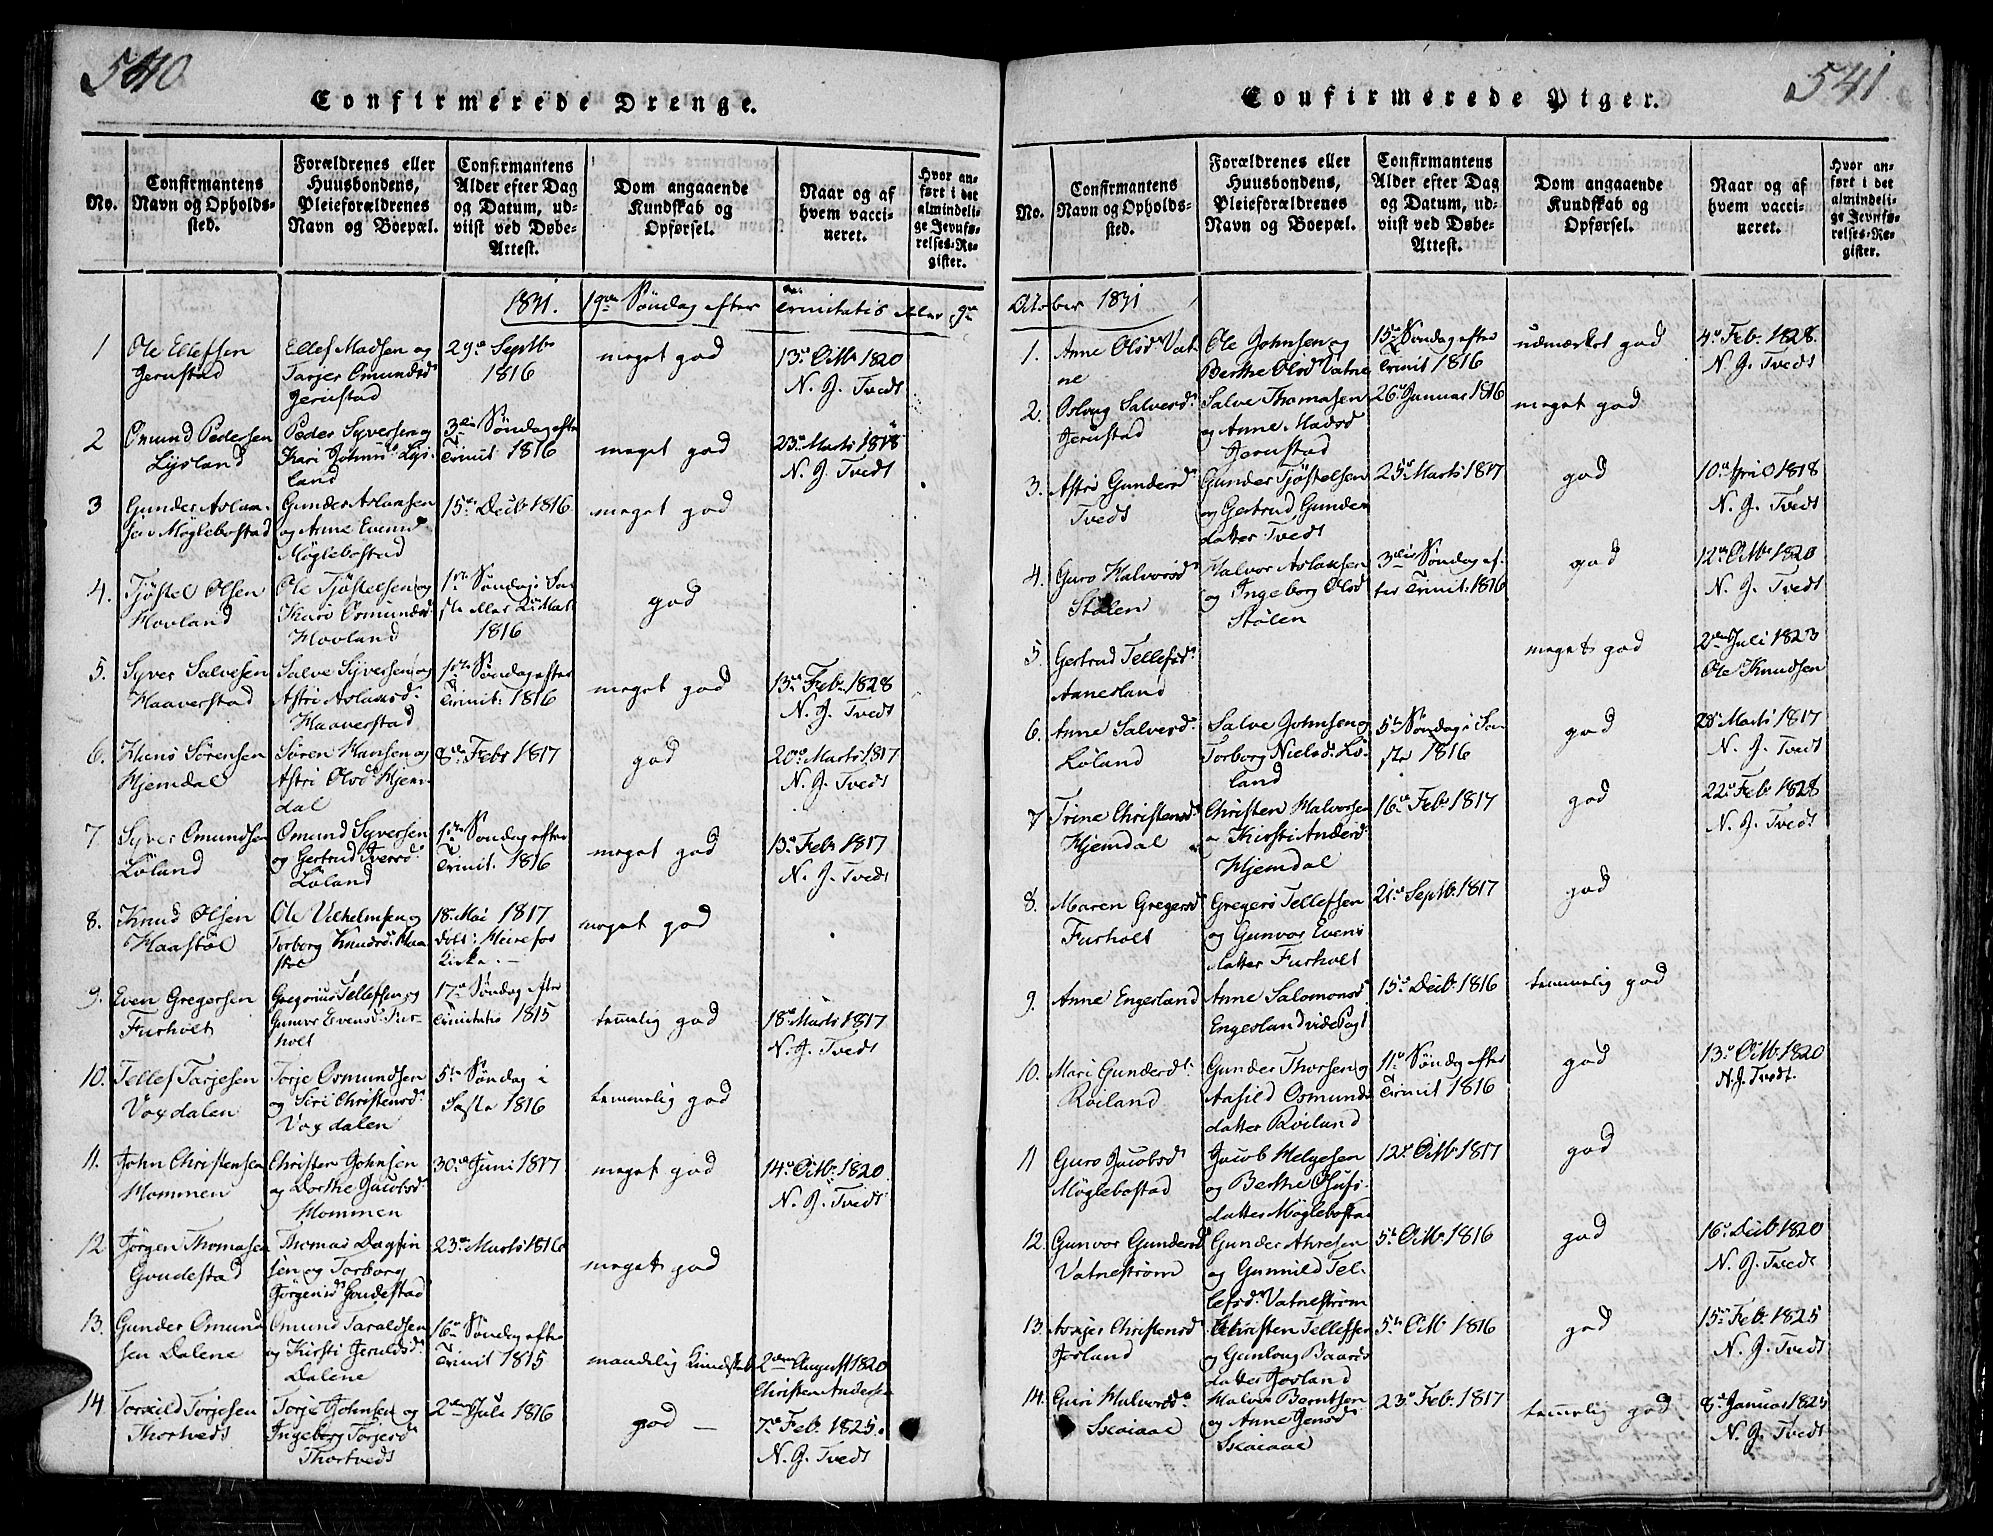 540
Confirmerede Drenge.
No.
Confirmantens
Navn og Opholds-
sted.
Forældrenes eller
Huusbondens,
Pleieforældrenes
Navn og Boepæl.
Confirmantens
Alder efter Dag
og Datum, ud-
viist ved Døbe-
Attest.
Dom angaaende
Kundskab og
Opførsel.
Naar og af
hvem vacci-
neret.
Hvor an-
ført i det
almindeli-
ge Jevnfø-
relses-Re-
gister.
1831. 19de Søndag efter Trinitatis eller 9de
1
Ole Ellefsen
Jerustad
Ellef Madsen og
Tarjer Omundsd
Jerustad
29de Septbr
1816
meget god
13de Octbr 1820
N. J. Tvedt
2
Omund Pedersen
Lysland
Peder Syversen og
Kari Johnsd. Lys-
land
3die Søndag efter
Trinit 1816
meget god
23de Marts 1818
N. J. Tvedt
3
Gunder Aslak-
sen Møglebostad
Gunder Aslaksen
og Anne Evensd
Møglebostad
15de Decb 1816
meget god
4.
Tjøstel Olsen
Hovland
Ole Tjøstelsen og
Kari Osmundsd
Hovland
1ste Søndag i Fa-
ste eller 2de Mart
1816
god
5.
Syver Salvesen
Haaverstad
Salve Syversen og
Astri Aslaksd.
Haaverstad
1ste Søndag efter
Trinit: 1816
meget god
13de Feb. 1828
N. J. Tvedt
6.
Hans Sørensen
Hjemdal
Søren Hansen og
Astri Olsd. Hjem-
dal
8de Febr 1817
god
20de Marts 1817
N. J. Tvedt
7.
Syver Omundsen
Løland
Omund Syversen
og Gertrud Iversd.
Løland
1ste Søndag efter
Trinit. 1816
meget god
13de Febr 1817
N. J. Tvedt
8.
Knud Olsen
Haastøl
Ole Vilhelmsen og
Torborg Knudsd. Haa
støl
18. Mai 1817
døbt i
Kirke. —
meget god
9.
Even Gregersen
Furholt
Gregorius Tellefsen og
Gunvor Evensd. Fur-
holt
17de Søndag efter
Trinitatis 1815
temmelig god
18de Marts 1817
N. J. Tvedt
10.
Tellef Tarjesen
Voxdalen
Torje Osmundsen
og Siri Christensd.
Voxdalen
5te Søndag i
Faste 1816
temmelig god
11.
John Christensen
Mommen
Christen Johnsen
og Dorthe Jacobsd.
Mommen
30de Juni 1817
meget god
14de Octbr. 1820
N. J. Tvedt
12
Jørgen Thomasen
Goudestad
Thomas Dagfin
sen og Torborg
Jørgensd Goudestad
23de Marts 1816
meget god
13.
Gunder Omund
sen Dalene
Omund Taraldsen
og Kirsti Jeruldsd.
Dalene
16de Søndag efter
Trinit 1815
maadelig Kundskab
2den August 1820
Christen Andersen
14.
Torkild Torjesen
Thortvedt
Torje Johnsen og
Ingeborg Torjersd.
Thortvedt
2den Juli 1816
god —
7de Feb. 1825.
N. J. Tvedt
541
Confirmerede Piger.
No.
Confirmantens
Navn og Opholds-
sted.
Forældrenes eller
Huusbondens,
Pleieforældrenes
Navn og Boepæl.
Confirmantens
Alder efter Dag
og Datum, ud-
viist ved Døbe-
Attest.
Dom angaaende
Kundskab og
Opførsel.
Naar og af
hvem vacci-
neret.
Hvor an-
ført i det
almindeli-
ge Jevnfø-
relses-Re-
gister.
October 1831
1.
Anne Olsd. Vat-
ne
Ole Johnsen og
Berthe Olsd Vatne
15de Søndag efter
Trinit 1816
udmærket god
4de Feb. 1828.
N. J. Tvedt
2.
Oslaug Salvesd.
Jerustad
Salve Thomasen
og Anne Madsd
Jerustad
26de Januar 1816
meget god
3.
Astri Gundersd.
Tvedt
Gunder Tjøstelsen
og Gertrud Gunder
datter Tvedt
25de Marts 1817
god
10de April 1818
N. J. Tvedt
4.
Guro Halvorsd.
Stølen
Halvor Aslaksen
og Ingeborg Olsd
Stølen
3die Søndag ef-
ter Trinit: 1816
god
12te Octbr 1820
N. J. Tvedt
5.
Gertrud Tellefsd.
Annesland
meget god
2den Juli 1823
Ole Knudsen
6.
Anne Salvesd.
Løland
Salve Johnsen og
Torborg Nielsd. Lø-
land
5te Søndag i Fa-
ste 1816
god
28de Marts 1817
N. J. Tvedt
7
Trine Christensd.
Hjemdal
Christen Halvorsen
og Kirsti Andersd.
Hjemdal
16de Feb. 1817
god
22de Feb 1828
N. J. Tvedt
8.
Maren Gregersd.
Furholt
Gregers Tellefsen
og Gunvor Evens
datter Furholt
21de Septb. 1817
god
9.
Anne Engesland
Anne Salomonsd.
Engesland vide Pag 1
15de Decb. 1816
temmelig god
10.
Mari Gundersdt.
Roiland
Gunder Thorsen og
Aasild Osmunds
datter Roiland
11te Søndag efter
Trinit 1816
god
13de Octbr. 1820
N. J. Tvedt.
11
Guro Jacobsd.
Møglebostad
Jacob Helgesen
og Berthe Olufs-
datter Møglebostad
12te Octbr. 1817
god
12.
Gunvor Gundersd.
Vatnestrøm
Gunder Ahresen
og Gunnild Tel-
lefsd. Vatnestrøm
5te Octbr 1816
god
16de Decb 1820
N. J. Tvedt
13.
Christensd.
Jorland
Christen Tellefsen
og Gunloug Baards
datter Jorland
5te Octbr. 1816
god
15de Feb. 1825
N. J. Tvedt
14.
Guri Halvorsd.
Skaiaae
Halvor Berntsen
og Anne Jensd.
Skaiaae
23de Feb. 1817
temmelig god
8de Januar 1825
N. J. Tvedt